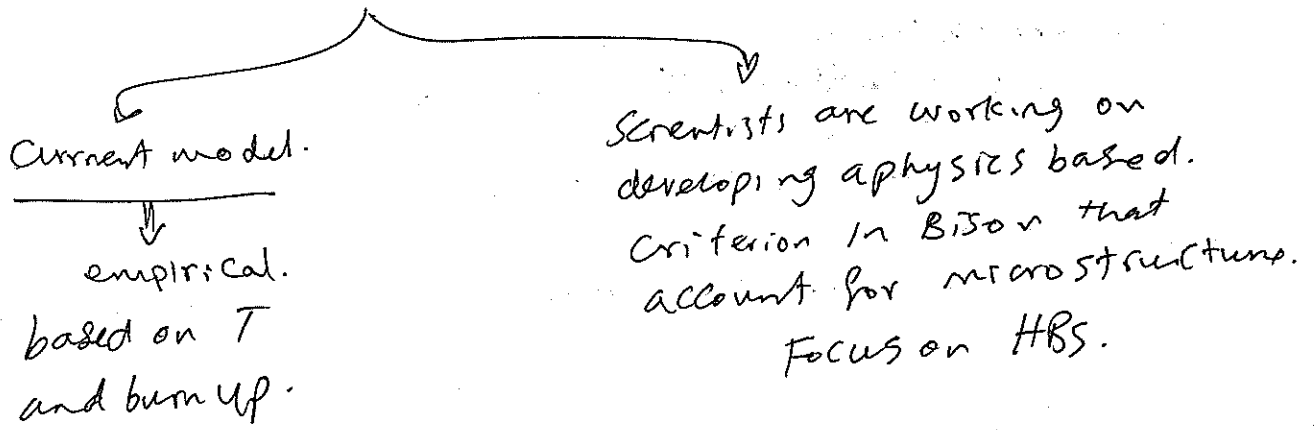 Current model.
empirical.
based on T
and burn up.
Scientists are working on
developing a physics based.
criterion in Bison that
account for microstructure.
Focus on HBS.